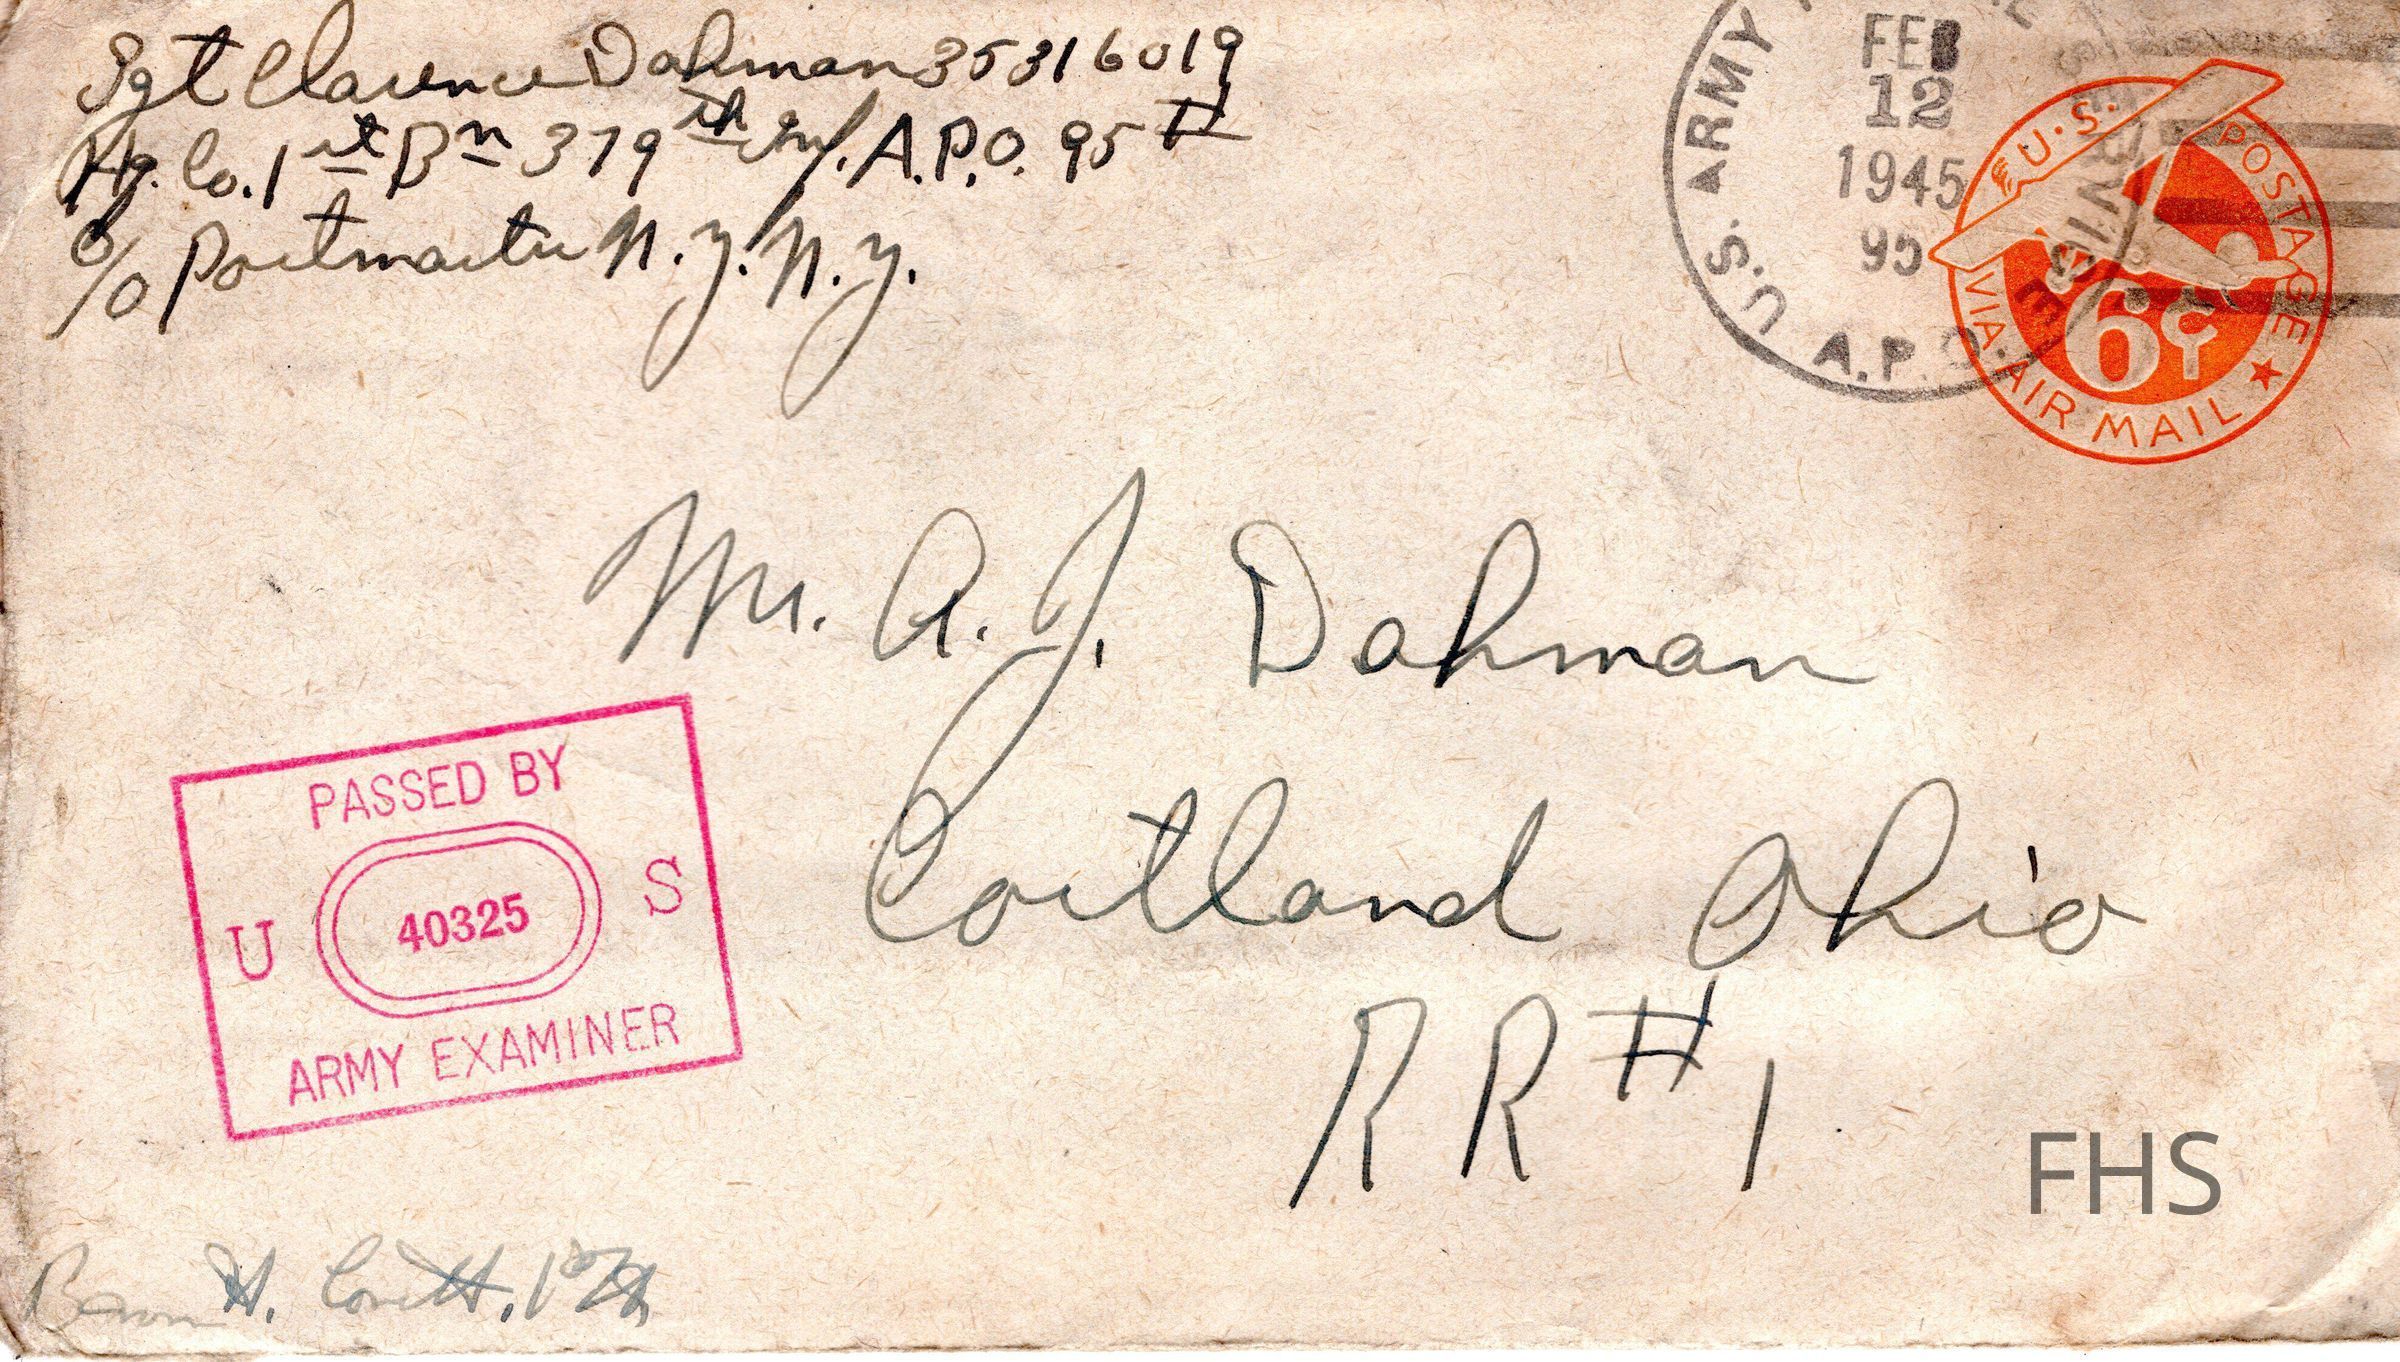 Sgt Clarence Dahman 35316019
Hq. Co. 1st Bn 379th Inf. A.P.O. 95 #
c/o Postmaster N.Y. N.Y.
U.S. ARMY
FEB
12
1945
95
A.P.O.
U.S. POSTAGE
6¢
VIA AIR MAIL
Mr. A. J. Dahman
Cortland Ohio
RR #1
PASSED BY
U 40325 S
ARMY EXAMINER
H.
FHS